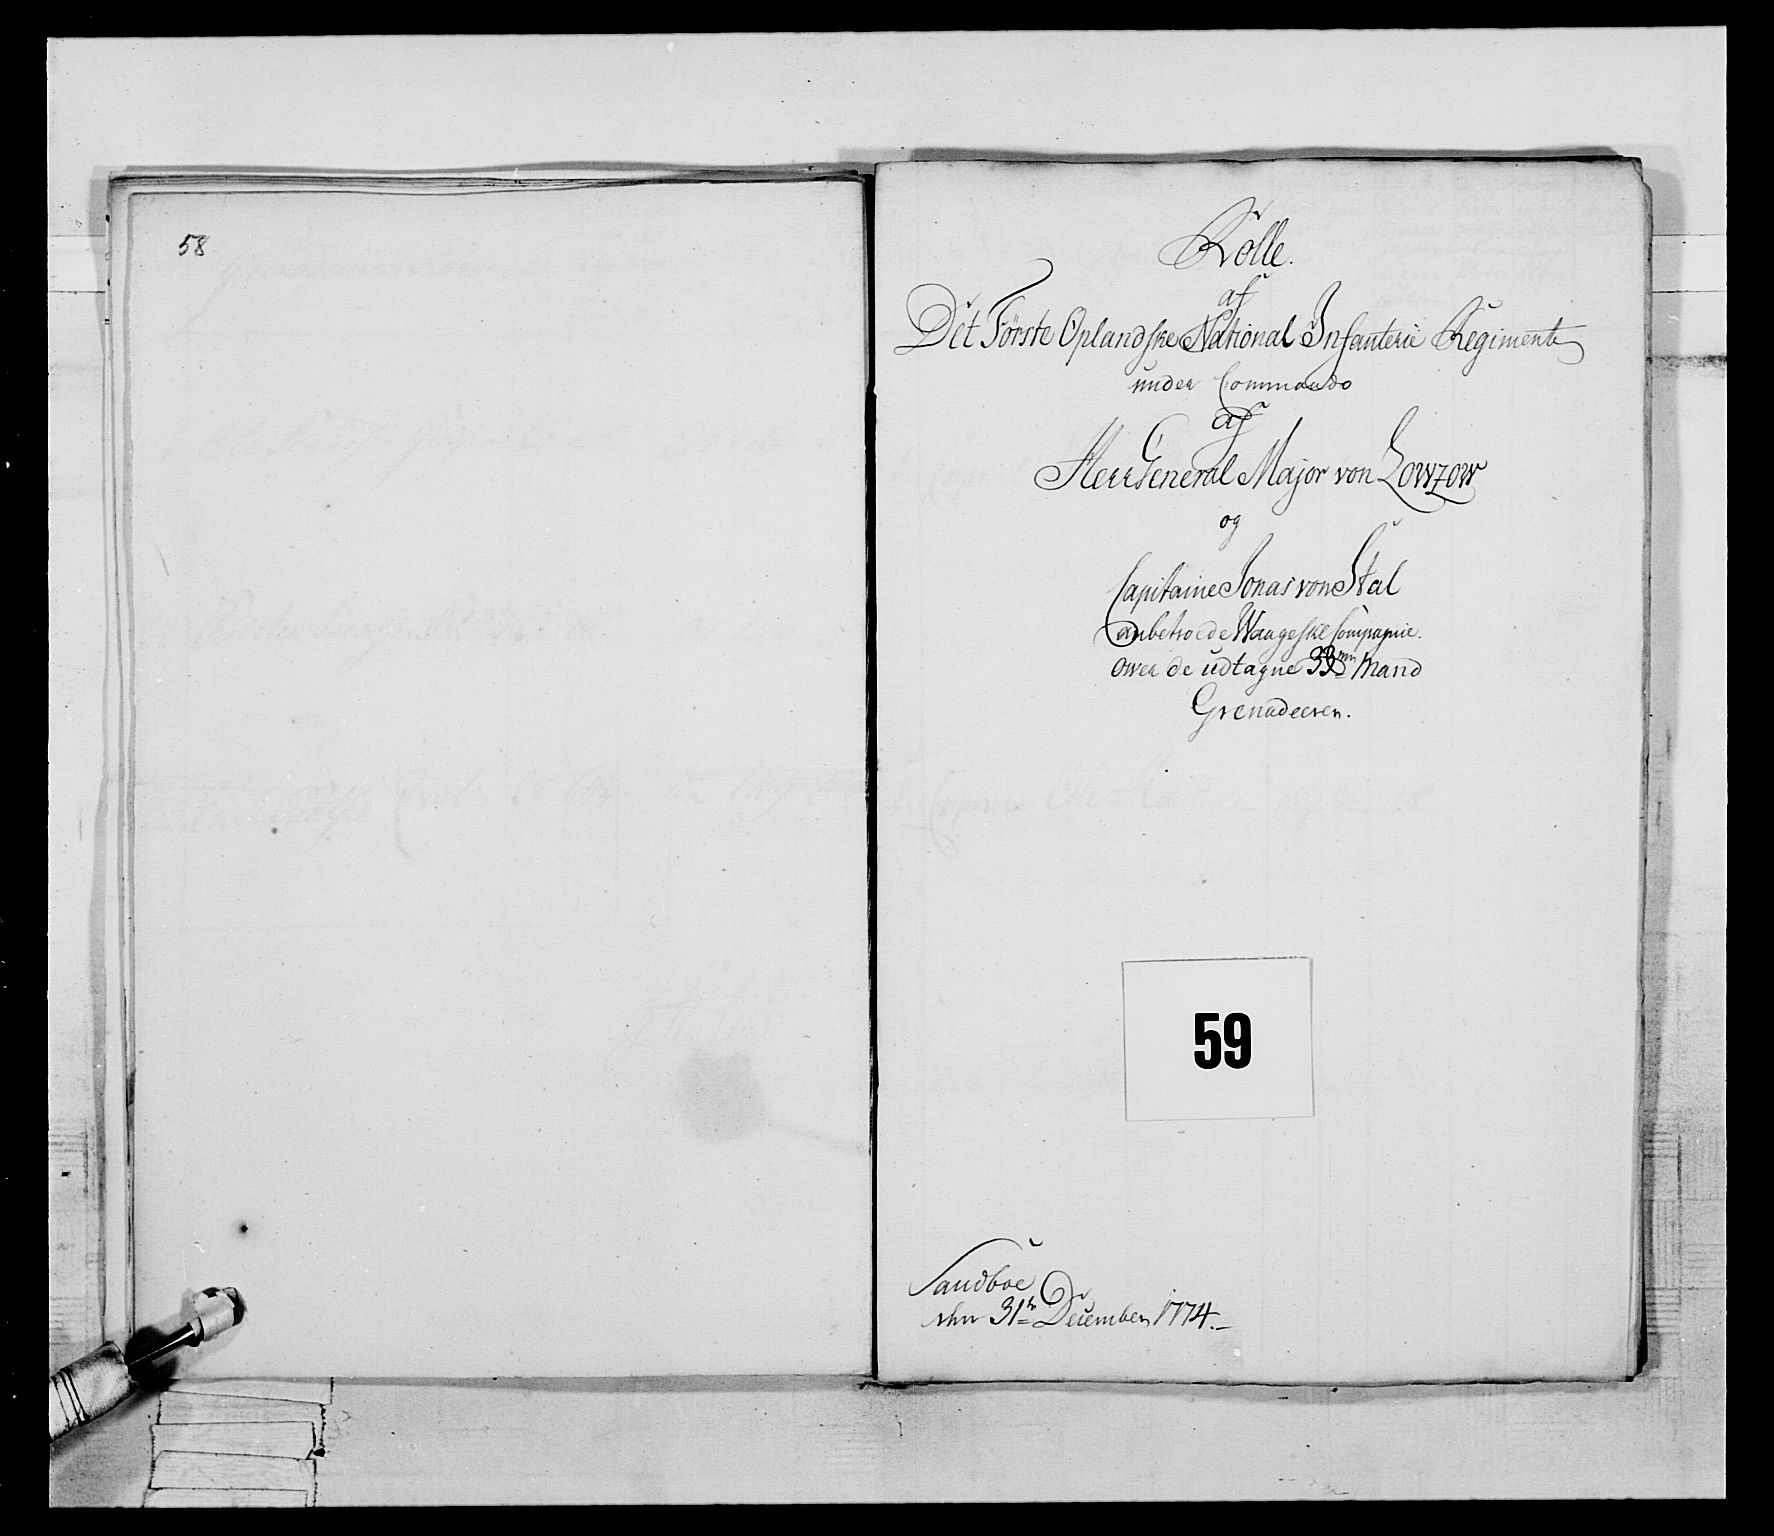 58
Rolle.
af
Det Förste Oplandske National Infanterie Regimente
under Commando
af
Herr General Major von Lowzow
og
Capitaine Jonas von Stal
anbetroede Waageske Compagnie.
over de udtagne 33 Mand
Grenadeerer.
59
Sandboe
den 31te December 1774.